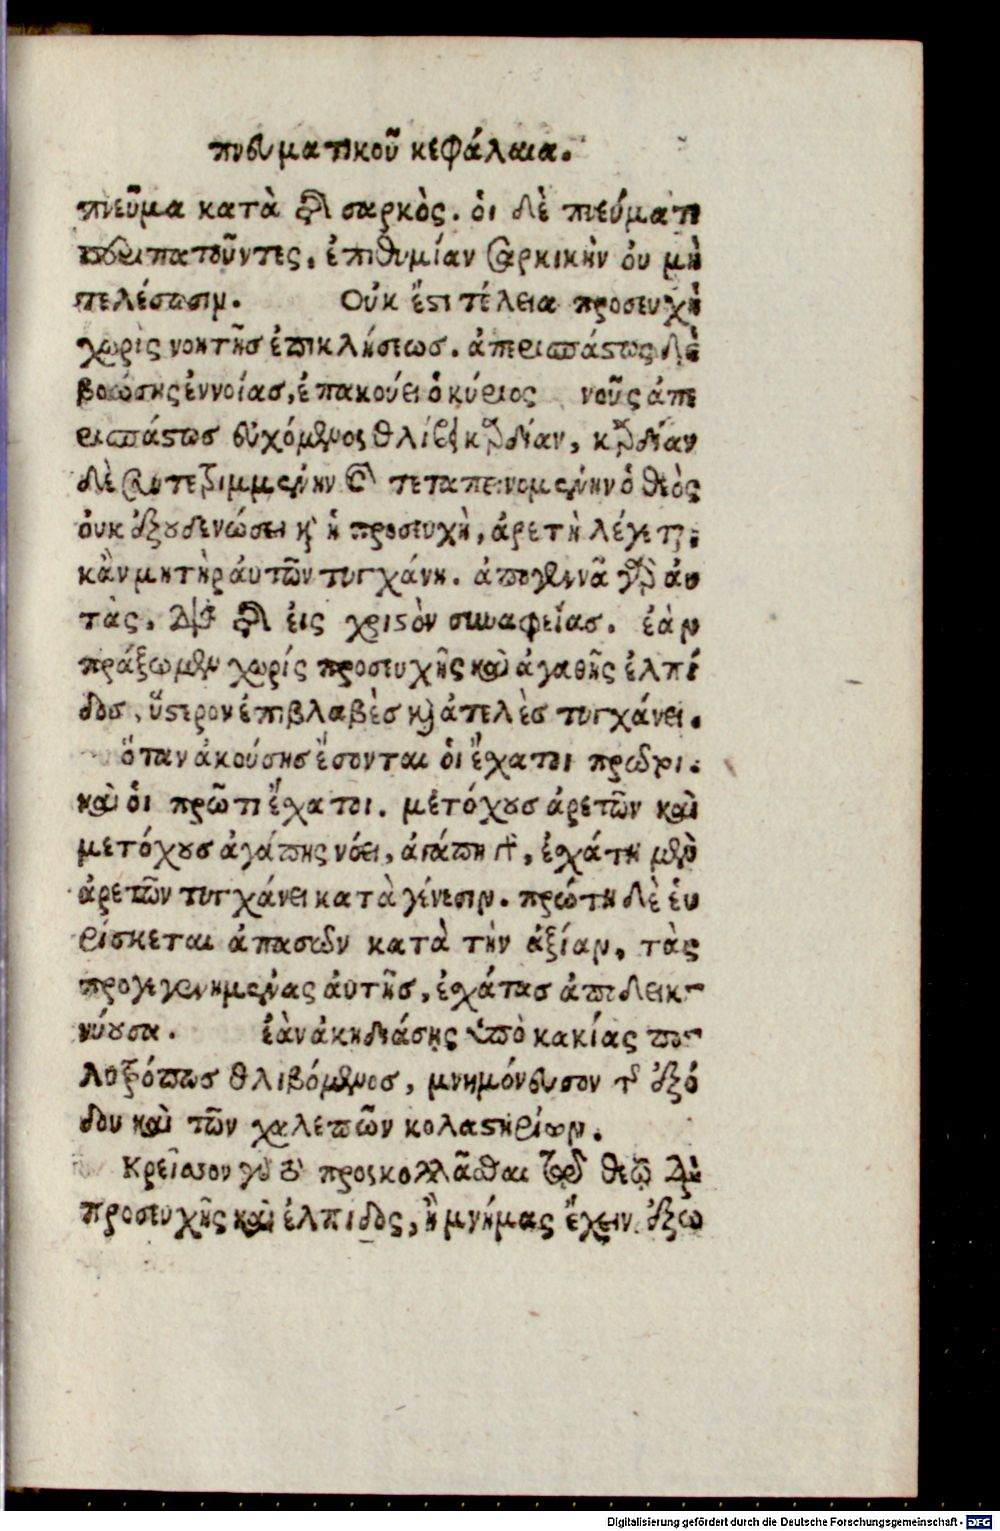 πνευματικοῦ κεφάλαια.
πνεῦμα κατὰ τῆς σαρκὸς. ὁι δὲ πνεύματι
περιπατοῦντες, ἐπιθυμίαν σαρκικὴν ὀυ μὴ
τελέσωσιν. Οὐκ ἔστι τέλεια προσευχὴ
χωρὶς νοητῆς ἐπικλήσεως. ἀπερισπάστως δὲ
βοώσης ἐννοίας, ἐπακούει ὁ κύριος νοῦς ἀπε
ρισπάστως εὐχόμενος θλίβει καρδίαν, καρδίαν
δὲ συντετριμμενην καὶ τεταπεινομενην ὁ θεὸς
ὀυκ ἐξουδενώσει κ ἡ προσευχὴ, ἀρετὴ λέγεται
κἂν μητὴρ ἀυτῶν τυγχάνη. ἀπογεννᾶ γὰρ ἀυ
τὰς, διὰ τῆς ἐις χριστὸν συναφείας. ἐὰν
πράξωμεν χωρίς προσευχῆς καὶ ἀγαθῆς ἐλπί
δος, ὕστερον ἐπιβλαβὲς καὶ ἀτελὲς τυγχάνει.
ὅταν ἀκούσης ἔσονται ὁι ἔχατοι πρῶτοι.
καὶ ὁι πρῶτι ἔχατοι. μετόχους ἀρετῶν καὶ
μετόχους ἀγάπης νόει, ἀγάπη γὰρ, ἐχάτη μὲν
ἀρετῶν τυγχάνει κατὰ γένεσιν. πρώτη δὲ ἑυ
ρίσκεται ἁπασῶν κατὰ τὴν ἀξίαν, τὰς
προγεγενημενας ἀυτῆς, ἐχάτας ἀποδεικ-
νύουσα. ἐὰν ἀκηδιάσης ὑπὸ κακίας πο-
λυτρόπως θλιβόμενος, μνημόνευσον τῆς ἐξό
δου καὶ τῶν χαλεπῶν κολαστηρίων.
Κρεῖσσον γὰρ προσκολλᾶσθαι τῷ θεῷ διὰ
προσευχῆς καὶ ἐλπιδος, ἢ μνήμας ἔχειν ἐξω
Digitalisierung gefördert durch die Deutsche Forschungsgemeinschaft - DFG